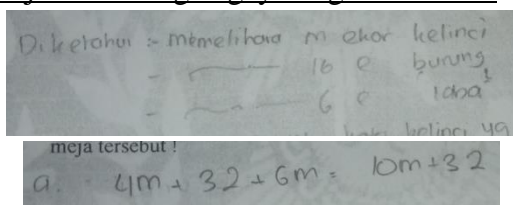 Diketahui :- memelihara m ekor kelinci
- 16 e burung
- 6 e laba²
kelinci ya
meja tersebut !
a. 4m + 32 + 6m = 10m + 32